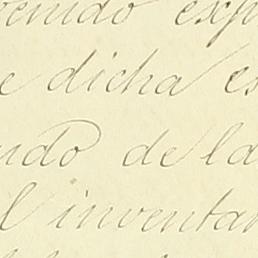 venido exp
e dicha es
udo de la
l inventar